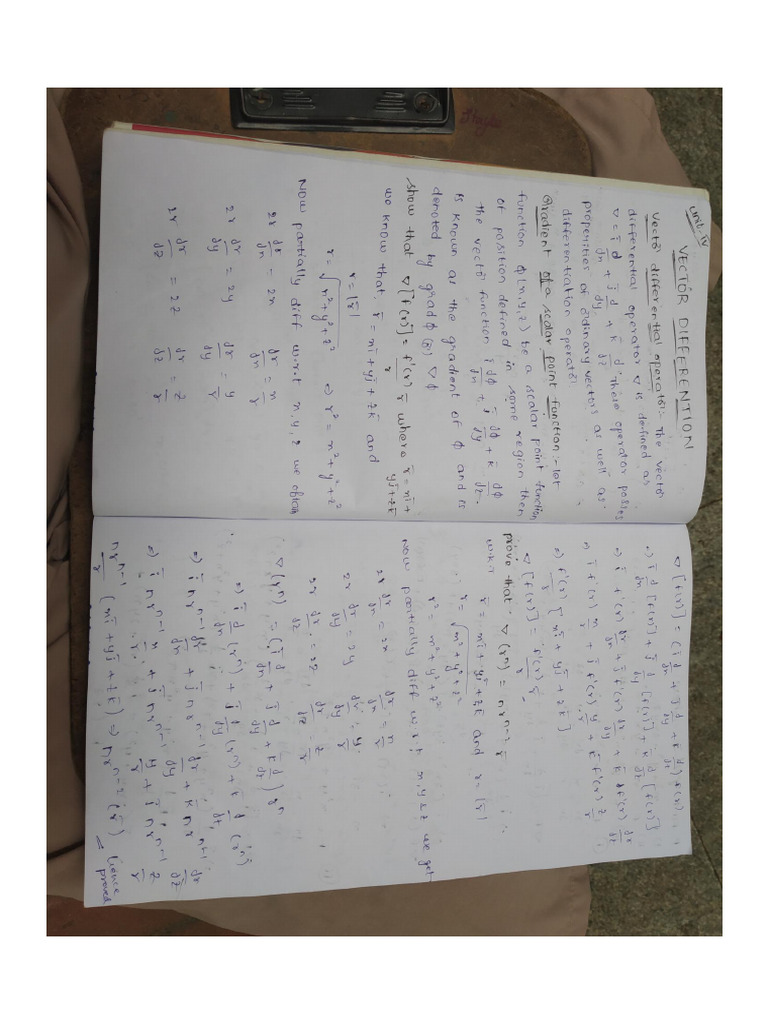 unit-IV
VECTOR DIFFERENTION
Vector differential operator:- The vector
differential operator ∇ is defined as
∇ = i̅ d/dx + j̅ d/dy + k̅ d/dz. These operator posses
properities of ordinary vectors as well as
differentiation operator.
Gradient of a scalar point function:- let
function ϕ(x,y,z) be a scalar point function
of position defined in some region then
the vector function i̅ dϕ/dx + j̅ dϕ/dy + k̅ dϕ/dz.
is known as the gradient of ϕ and is
denoted by grad ϕ (or) ∇ϕ
show that ∇[f(r)] = f'(r)/r r̅ where r̅ = xi̅ +
yj̅ + zk̅
we know that, r̅ = xi̅ + yj̅ + zk̅ and
r = |r̅|
r = √x²+y²+z² ⇒ r² = x²+y²+z²
Now partially diff w.r.t x,y,z we obtain
2r dr/dx = 2x dr/dx = x/r
2r dr/dy = 2y dr/dy = y/r
2r dr/dz = 2z dr/dz = z/r
∇[f(r)] = (i̅ d/dx + j̅ d/dy + k̅ d/dz) f(r)
⇒ i̅ d/dx [f(r)] + j̅ d/dy [f(r)] + k̅ d/dz [f(r)]
⇒ i̅ f'(r) dr/dx + j̅ f'(r) dr/dy + k̅ f'(r) dr/dz
⇒ i̅ f'(r) x/r + j̅ f'(r) y/r + k̅ f'(r) z/r
⇒ f'(r)/r [xi̅ + yj̅ + zk̅]
∇[f(r)] = f'(r)/r r̅.
prove that ∇(rⁿ) = nrⁿ⁻² r̅
w.k.t r̅ = xi̅ + yj̅ + zk̅ and r = |r̅|
r = √x²+y²+z²
r² = x²+y²+z²
Now partially diff w.r.t x,y & z we get
2r dr/dx = 2x dr/dx = x/r
2r dr/dy = 2y dr/dy = y/r
2r dr/dz = 2z, dr/dz = z/r
∇(rⁿ) = (i̅ d/dx + j̅ d/dy + k̅ d/dz) rⁿ
⇒ i̅ d/dx (rⁿ) + j̅ d/dy (rⁿ) + k̅ d/dz (rⁿ)
⇒ i̅ nrⁿ⁻¹ dr/dx + j̅ nrⁿ⁻¹ dr/dy + k̅ nrⁿ⁻¹ dr/dz
⇒ i̅ nrⁿ⁻¹ x/r + j̅ nrⁿ⁻¹ y/r + i̅ nrⁿ⁻¹ z/r
nrⁿ⁻¹/r (xi̅ + yj̅ + zk̅) ⇒ nrⁿ⁻² (r̅) = hence
proved